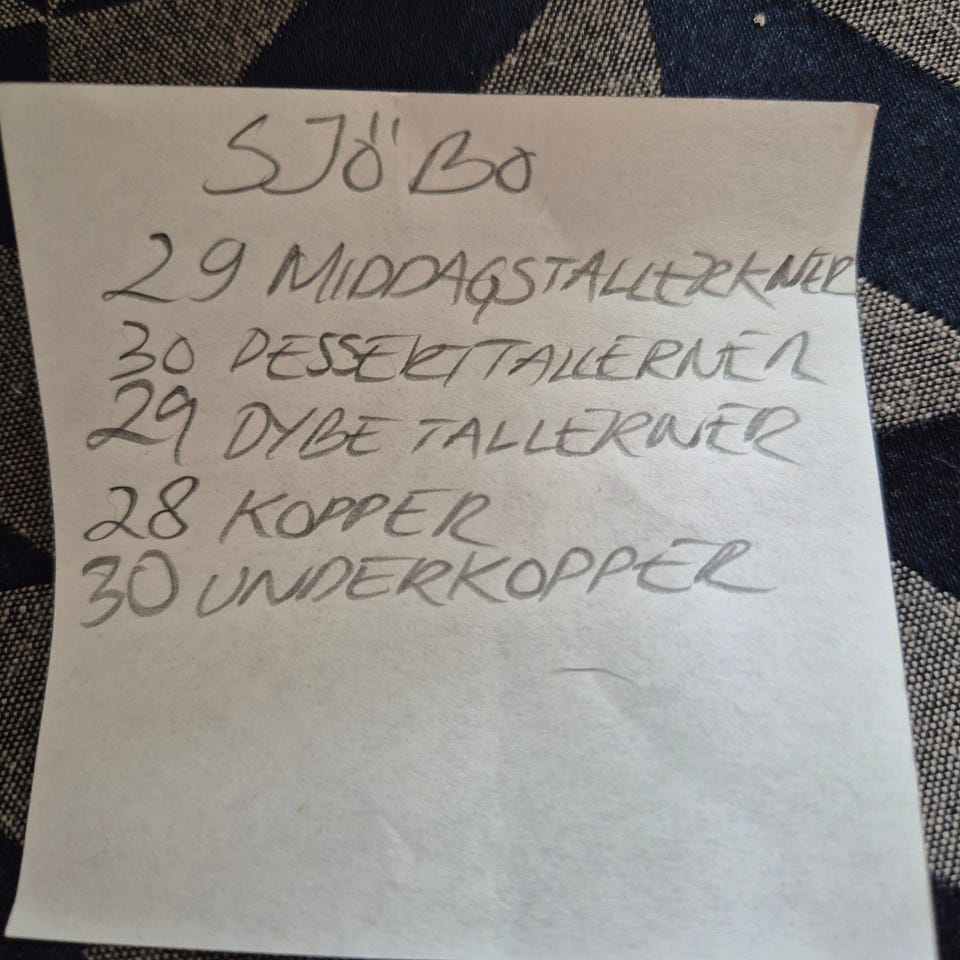 SJÖBO
29 MIDDAGSTALLERKNER
30 DESSERTTALLERNER
29 DYBE TALLERNER
28 KOPPER
30 UNDERKOPPER